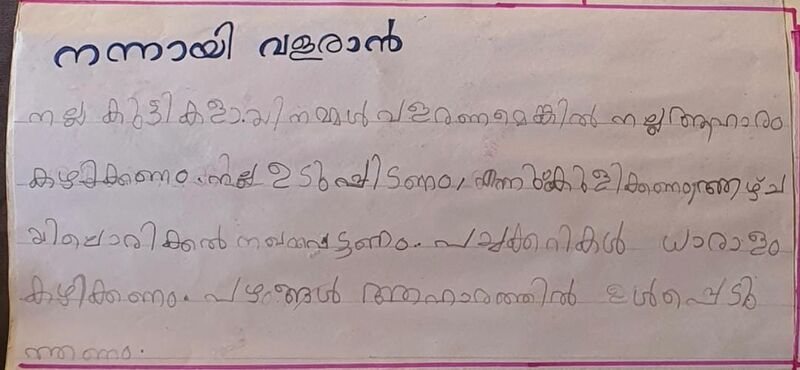 നന്നായി വളരാൻ
നല്ല കുട്ടികളായി നമ്മൾ വളരണമെങ്കിൽ നല്ല ആഹാരം
കഴിക്കണം. നല്ല ഉടുപ്പിടണം, എന്നും കുളിക്കണം ആഴ്ച
യിലൊരിക്കൽ നഖം വെട്ടണം. പച്ചക്കറികൾ ധാരാളം
കഴിക്കണം. പഴങ്ങൾ ആഹാരത്തിൽ ഉൾപ്പെടു
ത്തണം.